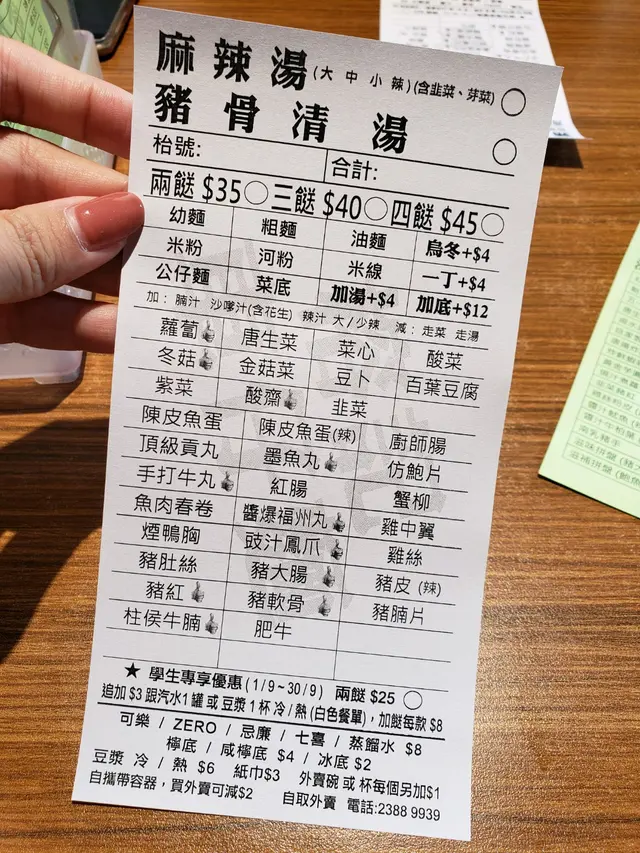 麻辣湯(大 中 小 辣)(含韭菜、芽菜)
豬骨清湯
枱號: 合計:
兩餸 $35 三餸 $40 四餸 $45
幼麵 粗麵 油麵 烏冬+$4
米粉 河粉 米線 一丁+$4
公仔麵 菜底 加湯+$4 加底+$12
加: 腩汁 沙嗲汁(含花生) 辣汁 大/少辣 減: 走菜 走湯
蘿蔔 唐生菜 菜心 酸菜
冬菇 金菇菜 豆卜 百葉豆腐
紫菜 酸齋 韭菜
陳皮魚蛋 陳皮魚蛋(辣) 廚師腸
頂級貢丸 墨魚丸 仿鮑片
手打牛丸 紅腸 蟹柳
魚肉春卷 醬爆福州丸 雞中翼
煙鴨胸 豉汁鳳爪 雞絲
豬肚絲 豬大腸 豬皮 (辣)
豬紅 豬軟骨 豬腩片
柱侯牛腩 肥牛
★ 學生專享優惠 (1/9~30/9) 兩餸 $25
追加 $3 跟汽水1 罐 或 豆漿 1 杯 冷 / 熱 (白色餐單), 加餸每款 $8
可樂 / ZERO / 忌廉 / 七喜 / 蒸餾水 $8
檸底 / 咸檸底 $4 / 冰底 $2
豆漿 冷 / 熱 $6 紙巾$3 外賣碗 或 杯每個另加$1
自攜帶容器，買外賣可減$2 自取外賣 電話:2388 9939